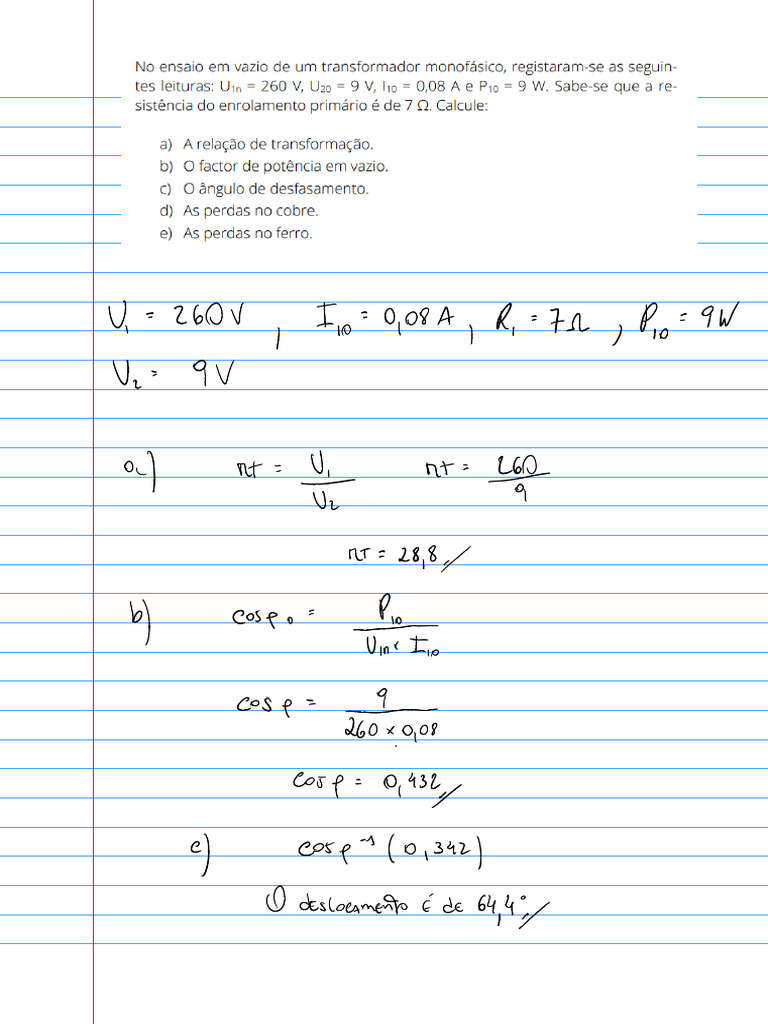 No ensaio em vazio de um transformador monofásico, registaram-se as seguin-
tes leituras: U₁ₙ = 260 V, U₂₀ = 9 V, I₁₀ = 0,08 A e P₁₀ = 9 W. Sabe-se que a re-
sistência do enrolamento primário é de 7 Ω. Calcule:
a) A relação de transformação.
b) O factor de potência em vazio.
c) O ângulo de desfasamento.
d) As perdas no cobre.
e) As perdas no ferro.
U₁ = 260V , I₁₀ = 0,08A , R₁ = 7Ω , P₁₀ = 9W
U₂ = 9V
a) nt = U₁ / U₂ nt = 260 / 9
nt = 28,8 //
b) cosφ₀ = P₁₀ / U₁ₙ × I₁₀
cosφ = 9 / 260 × 0,08
cosφ = 0,432 //
c) cosφ⁻¹ (0,342)
O deslocamento é de 64,4° //